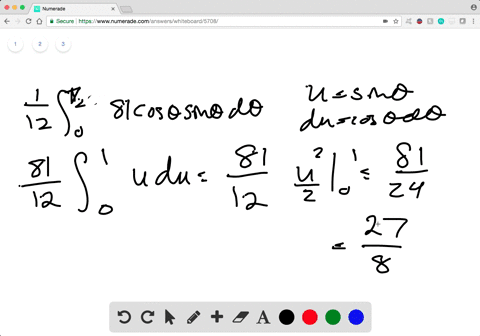 Numerade
Secure https://www.numerade.com/answers/whiteboard/5708/
1 2 3
1/12 ∫₀ 81 cosθ sinθ dθ
u = sinθ
du = cosθ dθ
81/12 ∫₀¹ u du = 81/12 u²/2 |₀¹ = 81/24
= 27/8
A